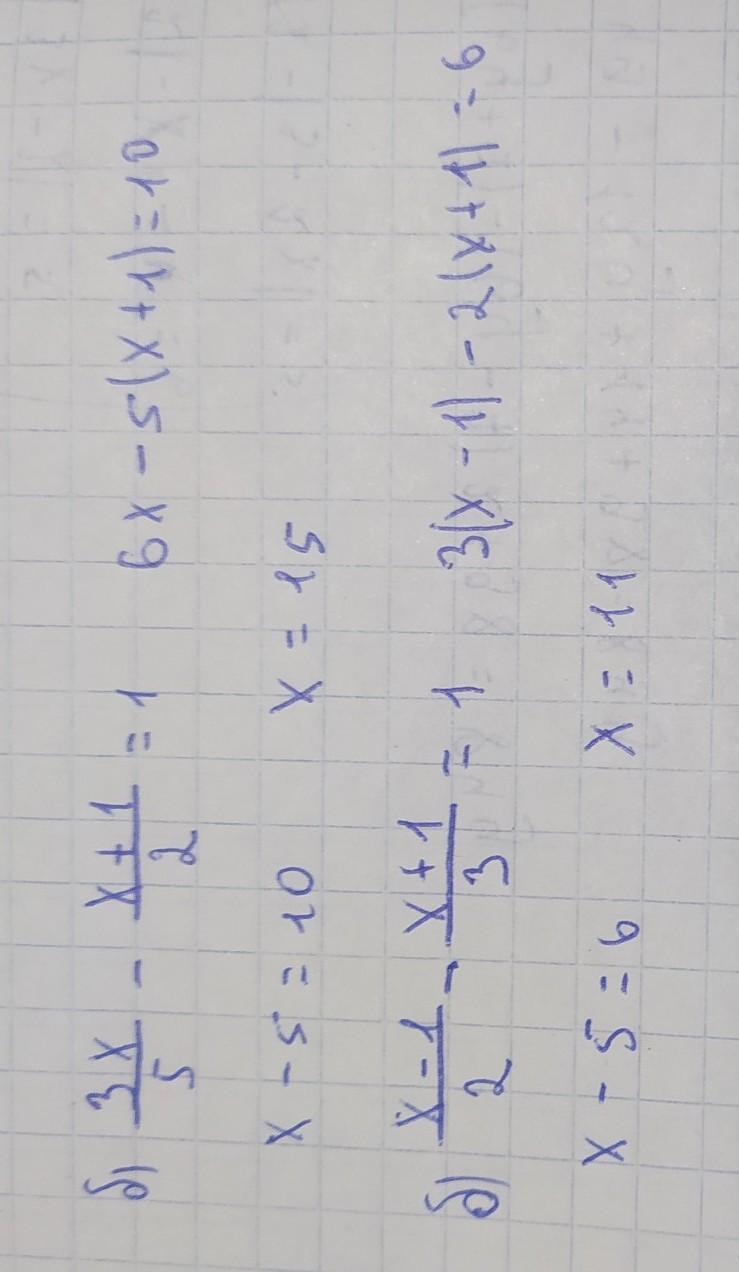 б) 3x/5 - x+1/2 = 1 6x - 5(x+1) = 10
x - 5 = 10 x = 15
б) x-1/2 - x+1/3 = 1 3(x-1) - 2(x+1) = 6
x - 5 = 6 x = 11